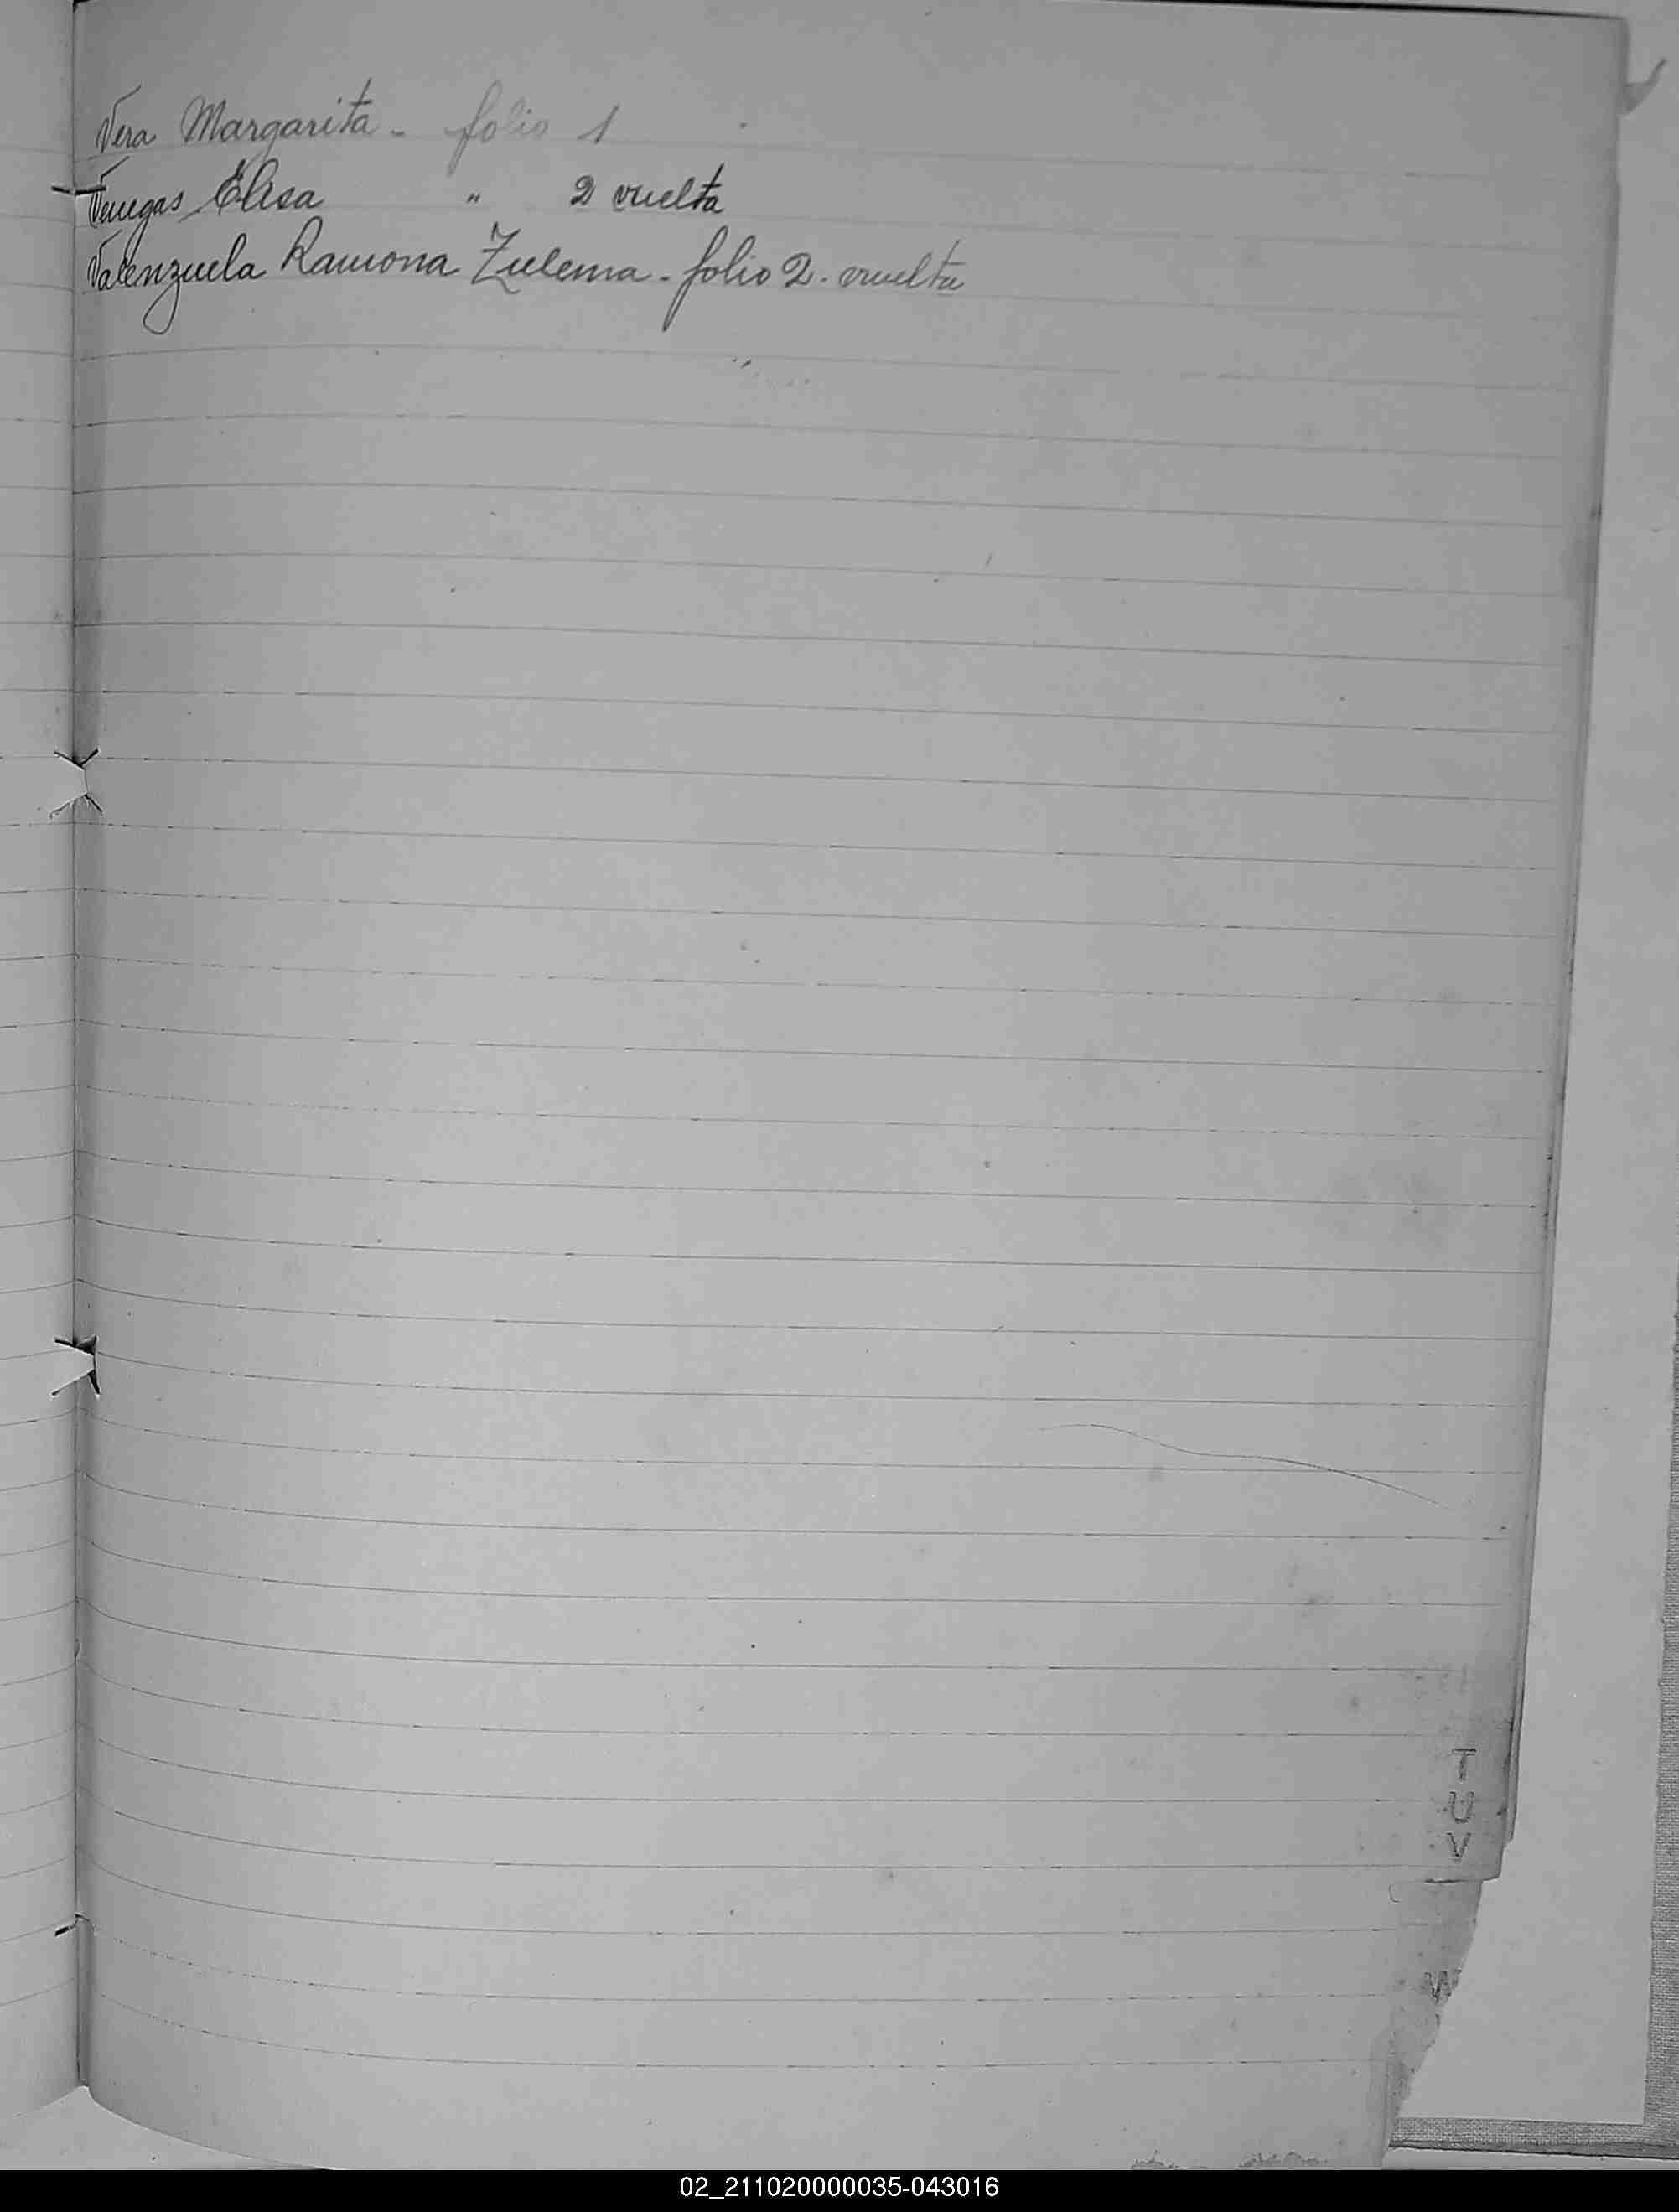 Vera Margarita - folio 1
Venegas Elisa " 2 vuelta
Valenzuela Ramona Zulema - folio 2 - vuelta
T
U
V
W
02_211020000035-043016